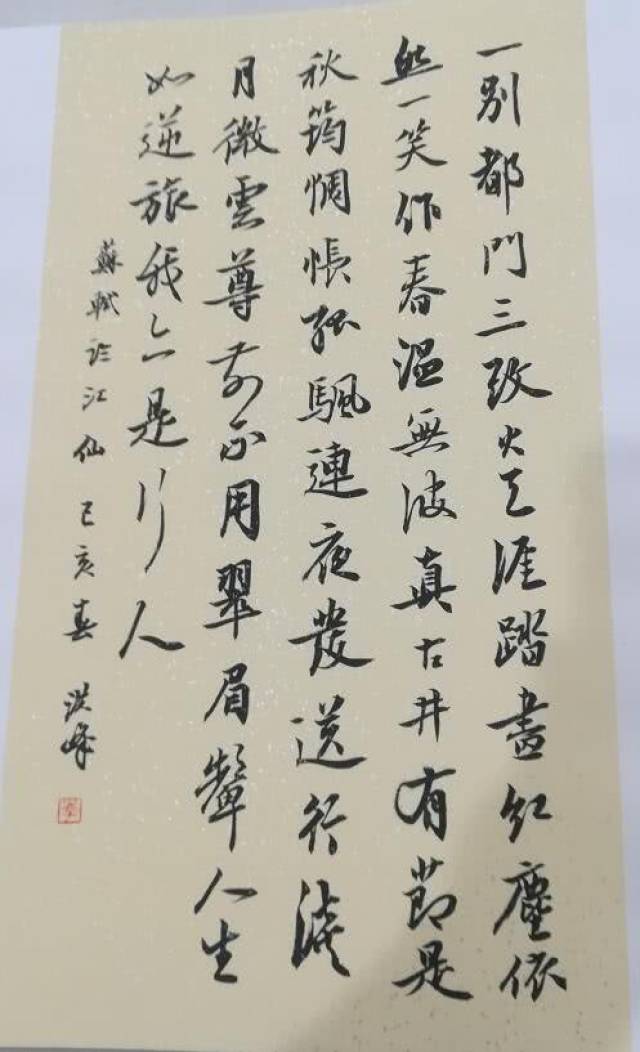 一别都門三改火天涯踏盡红塵依
然一笑作春温無波真古井有節是
秋筠惆悵孤颿連夜發送行淡
月微雲尊前不用翠眉顰人生
如逆旅我亦是行人
蘇軾临江仙 己亥春 洪峰